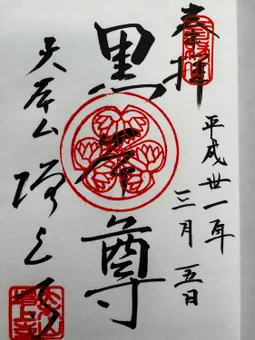 奉拝
平成丗一年
三月五日
黒本尊
大本山 増上寺